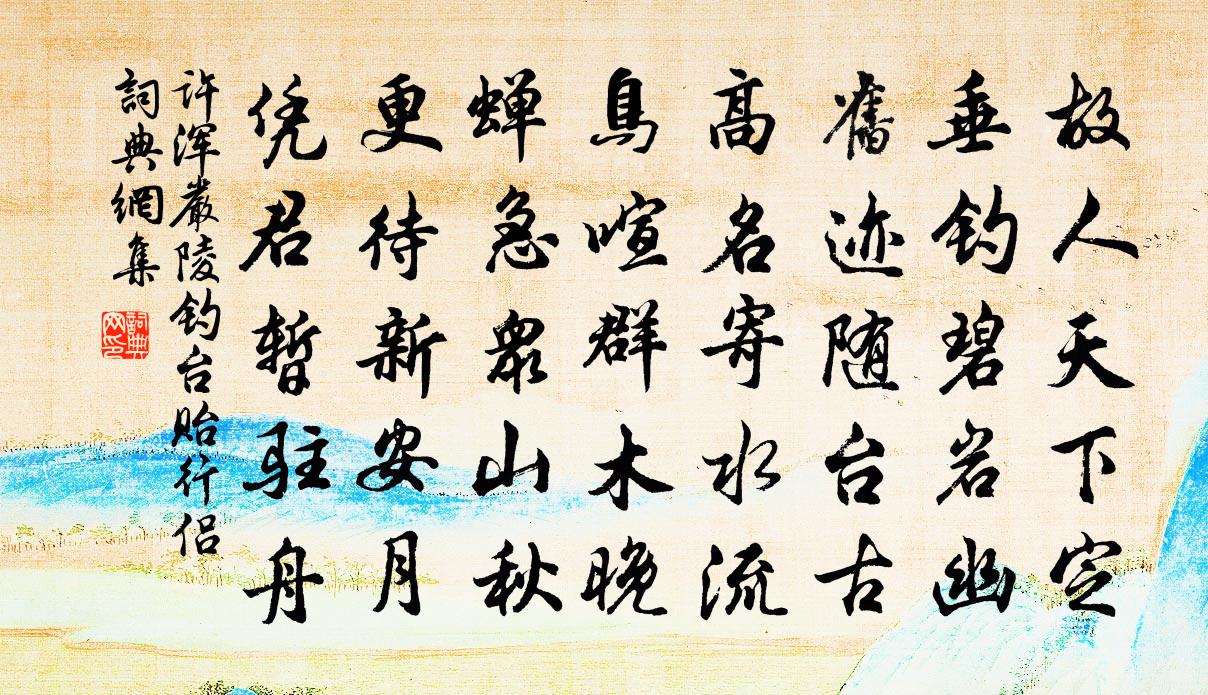 故人天下定
垂钓碧岩幽
舊迹随台古
高名寄水流
鳥喧群木晚
蝉急眾山秋
更待新安月
凭君暫驻舟
许浑嚴陵钓台贻行侣
詞典網集
詞典
网印